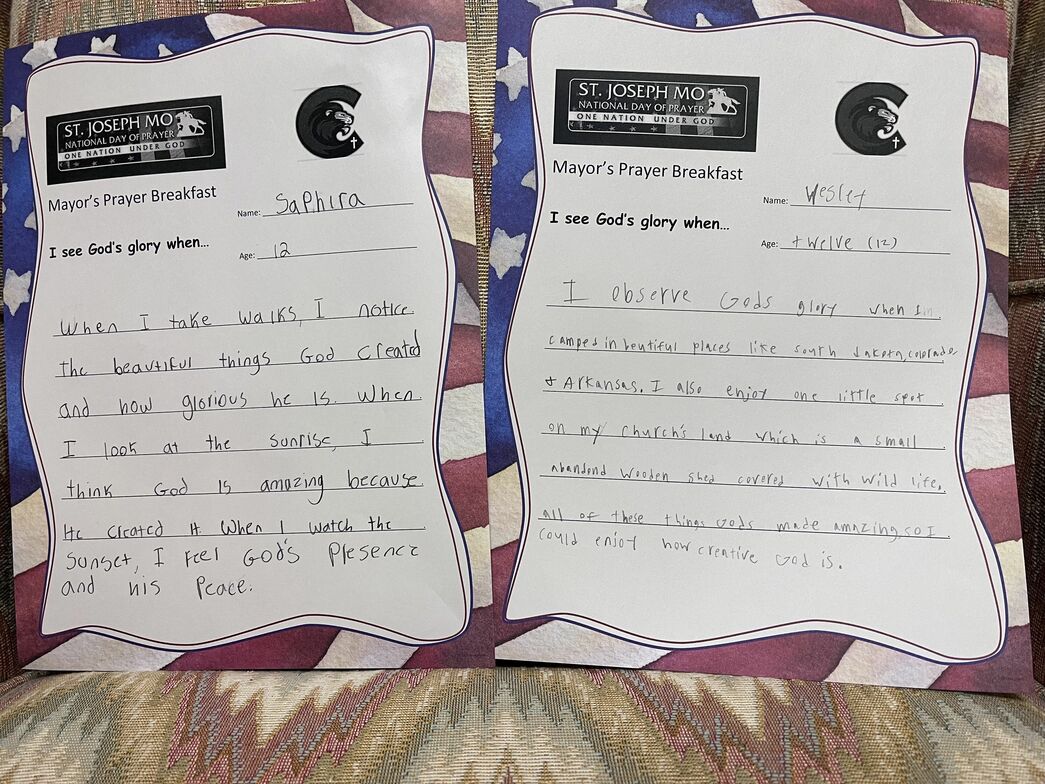 ST. JOSEPH MO
NATIONAL DAY OF PRAYER
ONE NATION UNDER GOD
Mayor's Prayer Breakfast
Name: Saphira
I see God's glory when...
Age: 12
When I take walks, I notice
the beautiful things God created
and how glorious he is. When
I look at the sunrise, I
think God is amazing because
He created it. When I watch the
sunset, I feel God's presence
and his peace.
ST. JOSEPH MO
NATIONAL DAY OF PRAYER
ONE NATION UNDER GOD
Mayor's Prayer Breakfast
Name: Wesley
I see God's glory when...
Age: twelve (12)
I observe Gods glory when Im
camped in beutiful places like south dakota, colorado,
& Arkansas. I also enjoy one little spot
on my church's land which is a small
abandend wooden shed covered with wild life.
all of these things Gods made amazing, so I
could enjoy how creative God is.